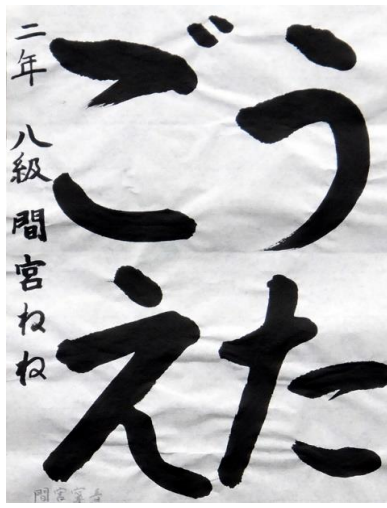 うた
ごえ
二年 八級 間宮ねね
間宮